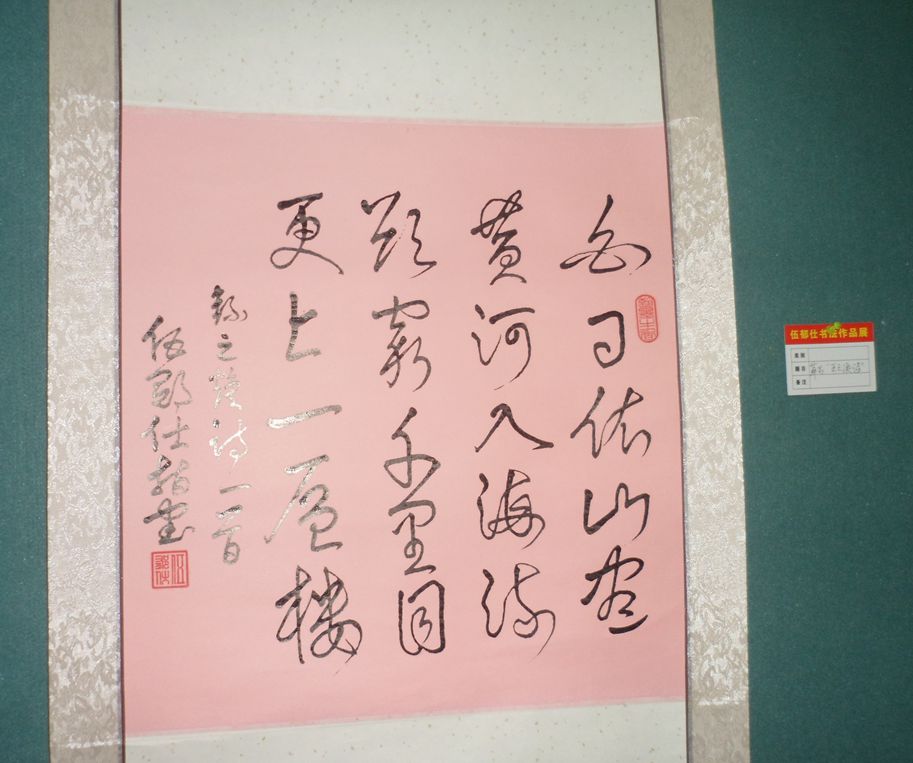 白日依山尽
黄河入海流
欲穷千里目
更上一层楼
录王之涣诗一首
伍郁仕指书
伍郁仕书法作品展
类别
题目
备注